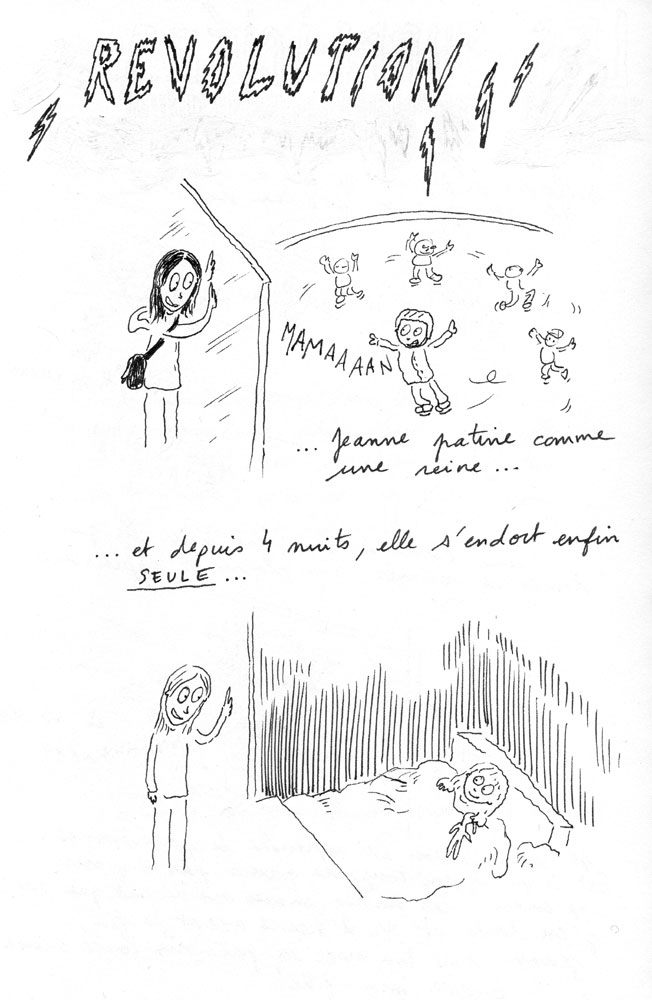 REVOLUTION
MAMAAAAN
... Jeanne patine comme
une reine ...
... et depuis 4 nuits, elle s'endort enfin
SEULE ...